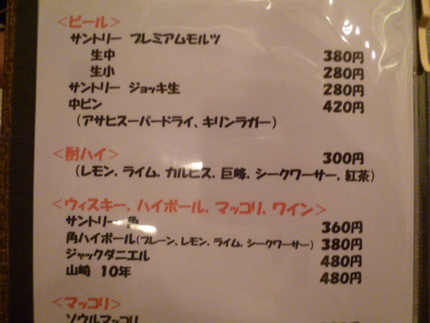 <ビール>
サントリー プレミアムモルツ
生中 380円
生小 280円
サントリー ジョッキ生 280円
中ビン 420円
(アサヒスーパードライ、キリンラガー)
<酎ハイ> 300円
(レモン、ライム、カルピス、巨峰、シークワーサー、紅茶)
<ウィスキー、ハイボール、マッコリ、ワイン>
サントリー 角 360円
角ハイボール(プレーン、レモン、ライム、シークワーサー) 380円
ジャックダニエル 480円
山崎 10年 480円
<マッコリ>
ソウルマッコリ